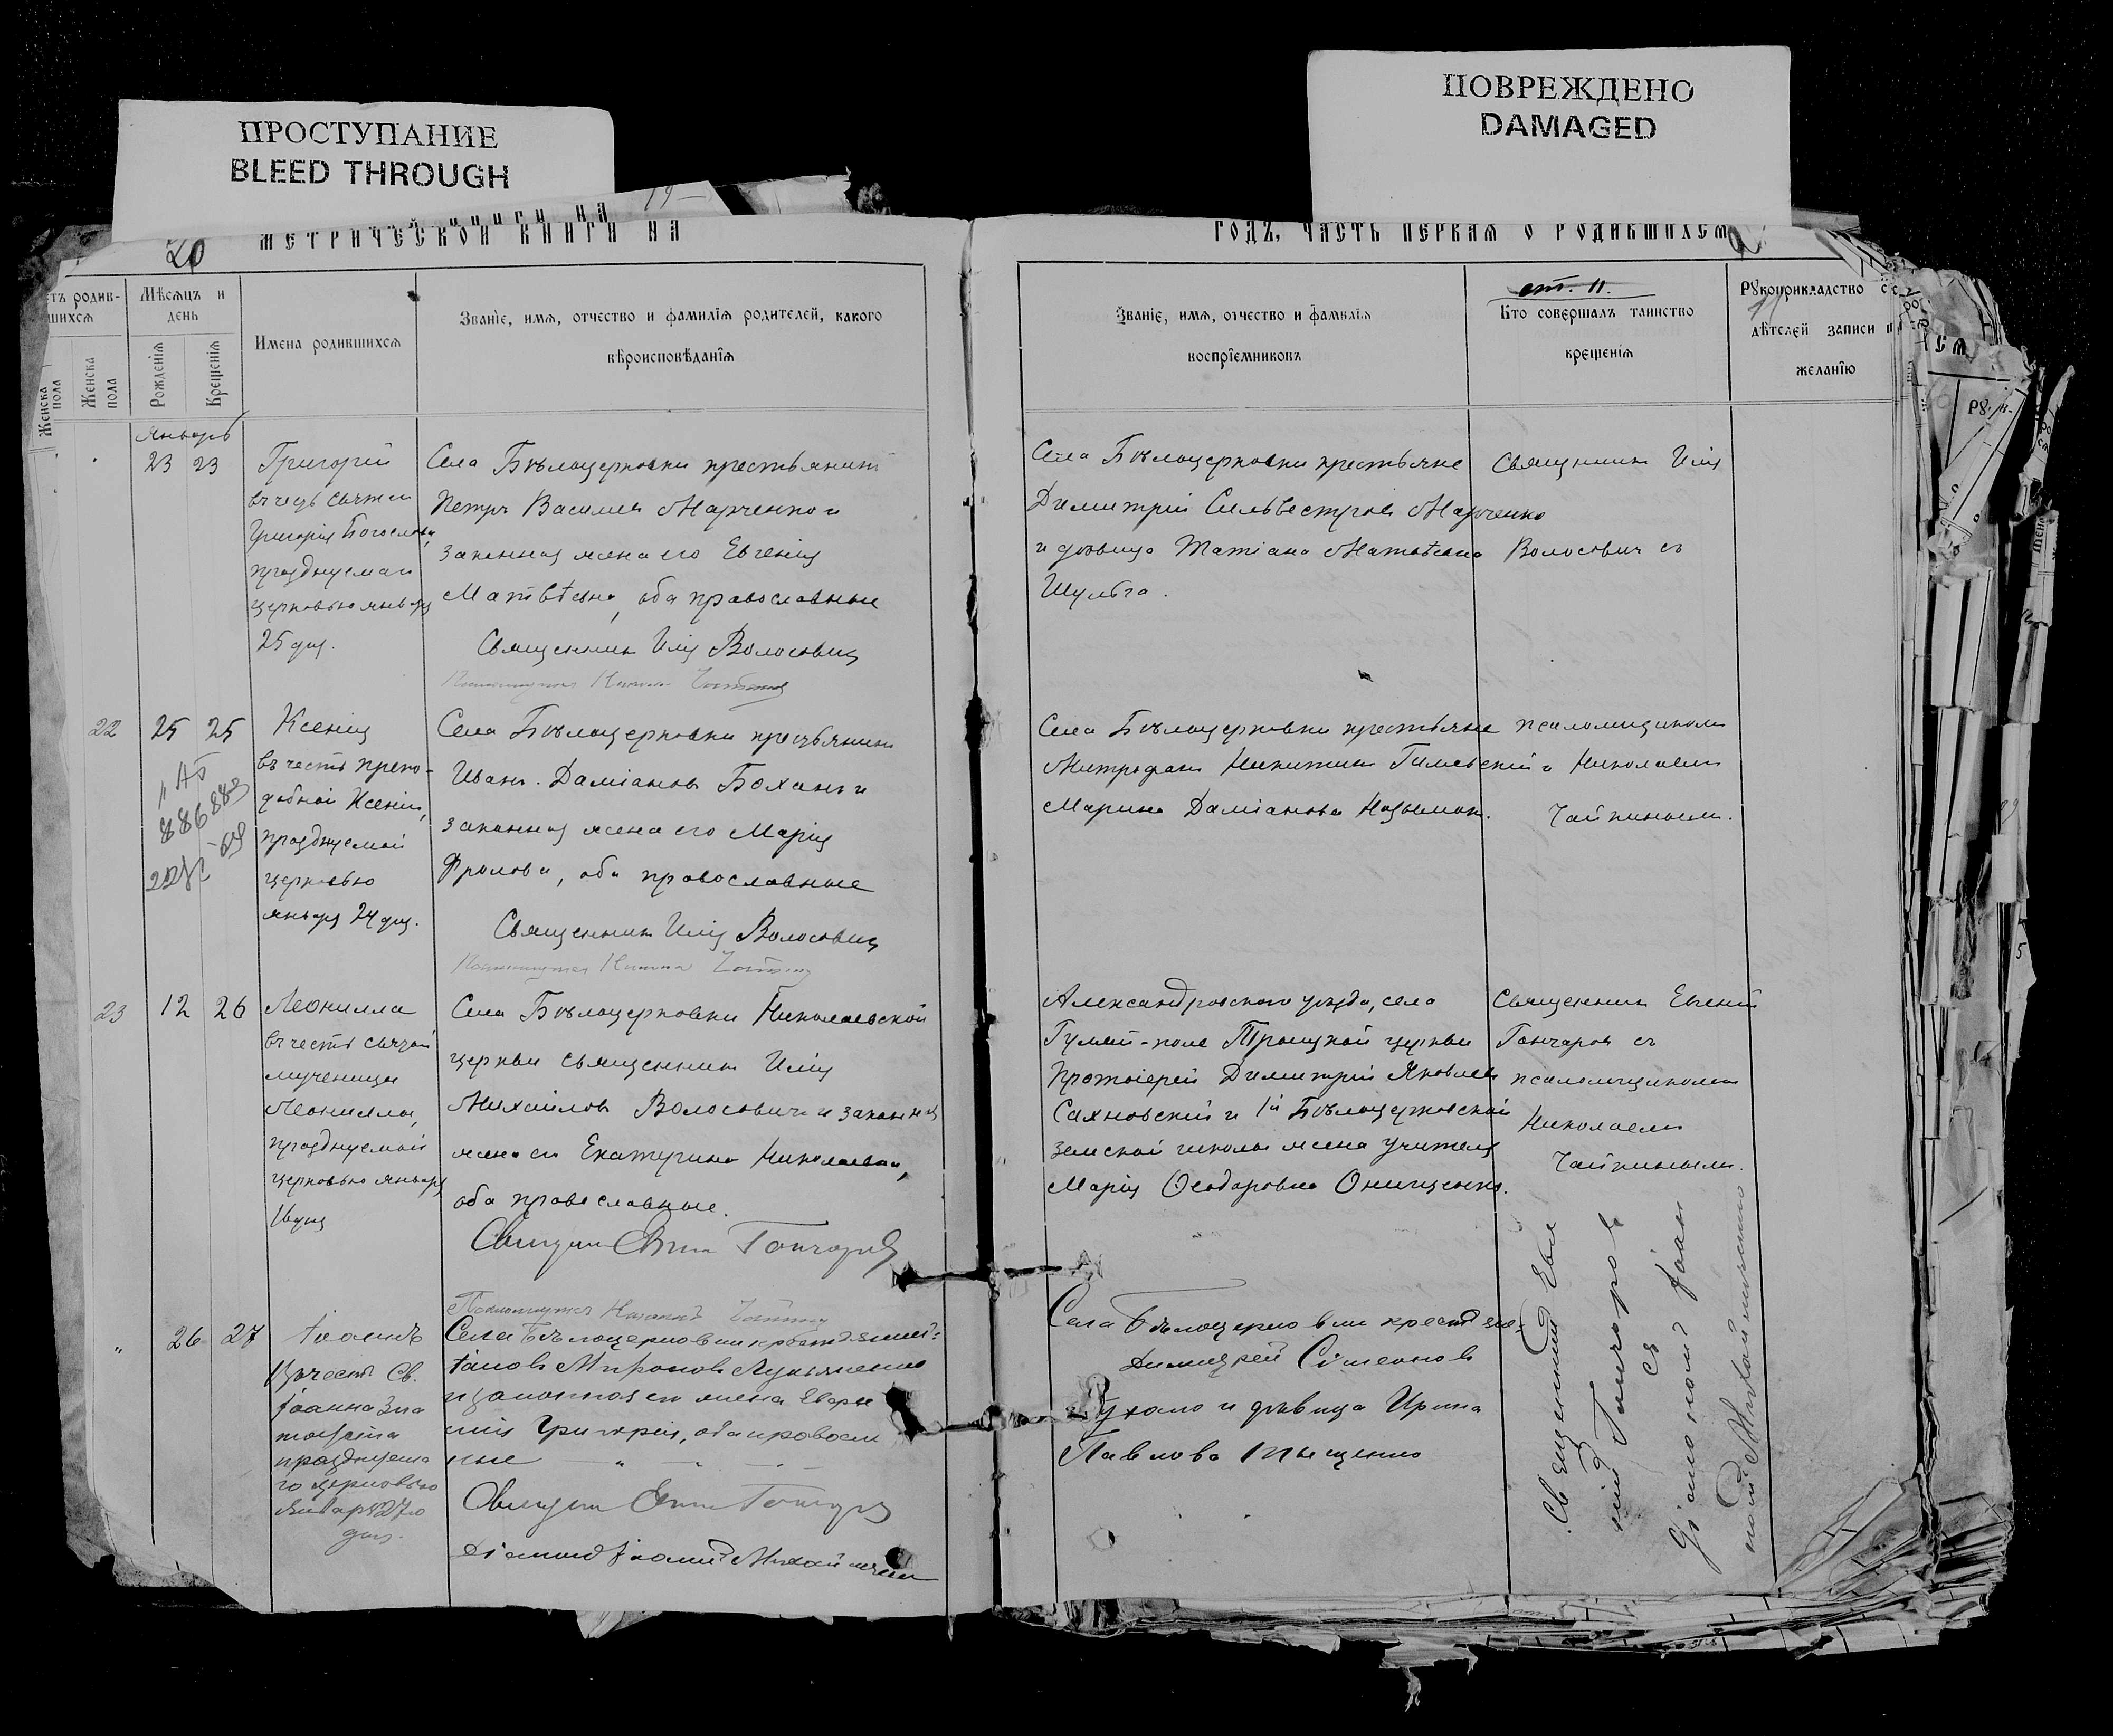 ПРОСТУПАНИЕ
BLEED THROUGH
ПОВРЕЖДЕНО
DAMAGED
20
МЕТРИЧЕСКОЙ КНИГИ НА
ГОДЪ, ЧАСТЬ ПЕРВАЯ О РОДИВШИХСЯ
родив-
шихся
Женска
пола
Мѣсяцъ и
день
Рожденія
Крещенія
Имена родившихся
Званіе, имя, отчество и фамилія родителей, какого
вѣроисповѣданія
Званіе, имя, отчество и фамилія
воспріемниковъ
ст. 11.
Кто совершалъ таинство
крещенія
Рукоприкладство
записи
желанію
Январь
23 23
Григорій
въ честь
Григорія Богослова,
празднуемаго
церковью января
25 дня.
Села Бѣлоцерковки крестьянинъ
Петръ Васильевъ Марченко и
законная жена его Евгенія
Матвѣева, оба православные
Священникъ Илія Волосовичъ
Села Бѣлоцерковки крестьяне
Димитрій Сильвестровъ Марченко
и дѣвица Татіана Матвѣева
Шульга.
Священникъ Илія
Волосовичъ съ
22
25 25
Ксенія
въ честь препо-
добной Ксеніи,
празднуемой
церковью
января 24 дня.
Села Бѣлоцерковки крестьянинъ
Иванъ Даміановъ Боханъ и
законная жена его Марія
Фролова, оба православные
Священникъ Илія Волосовичъ
Села Бѣлоцерковки крестьяне
Митрофанъ Никитинъ и
Марина Даміанова
псаломщикомъ
Николаемъ
Чайкинымъ.
23
12 26
Леонилла
въ честь святой
мученицы
Леониллы,
празднуемой
церковью января
16 дня
Села Бѣлоцерковки Николаевской
церкви священникъ Илія
Михайловъ Волосовичъ и законная
жена его Екатерина Николаевна,
оба православные.
Священникъ Евгеній Гончаровъ
Александровскаго уѣзда, села
Гуляй-поле Троицкой церкви
Протоіерей Димитрій Яковлевъ
Сахновскій и 1й Бѣлоцерковской
земской школы жена учителя
Марія Ѳеодоровна Онищенко.
Священникъ Евгеній
Гончаровъ съ
псаломщикомъ
Николаемъ
Чайкинымъ.
26 27
Іоаннъ
въ честь Св.
Іоанна Зла
тоуста
празднуема
го церковью
Января 27го
дня.
Села Бѣлоцерковки
Іаковъ Мироновъ Лукьяненко
и законная его жена Евдокія
Григорія, оба православ
ные
Священникъ Евгеній Гончаровъ
Діаконъ Іоаннъ Михайличенко
Села Бѣлоцерковки крестьяне
Димитрій Симеоновъ
и дѣвица Ирина
Павлова Тищенко
Священникъ Евге
ній Гончаровъ
съ
Діакономъ Іоан
номъ Михайличенко